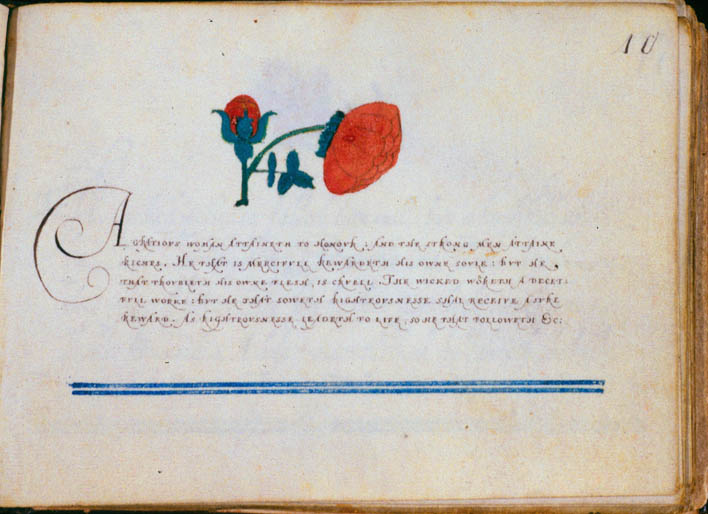 10
A GRATIOUS WOMAN ATTAINETH TO HONOUR : AND THE STRONG MEN ATTAINE
RICHES. HE THAT IS MERCIFULL REWARDETH HIS OWNE SOULE : BUT HE
THAT TROUBLETH HIS OWNE FLESH, IS CRUELL. THE WICKED WORKETH A DECET-
FULL WORKE : BUT HE THAT SOWETH RIGHTEOUSNESSE SHAL RECEIVE A SURE
REWARD. AS RIGHTEOUSNESSE LEADETH TO LIFE, SO HE THAT FOLLOWETH &C: